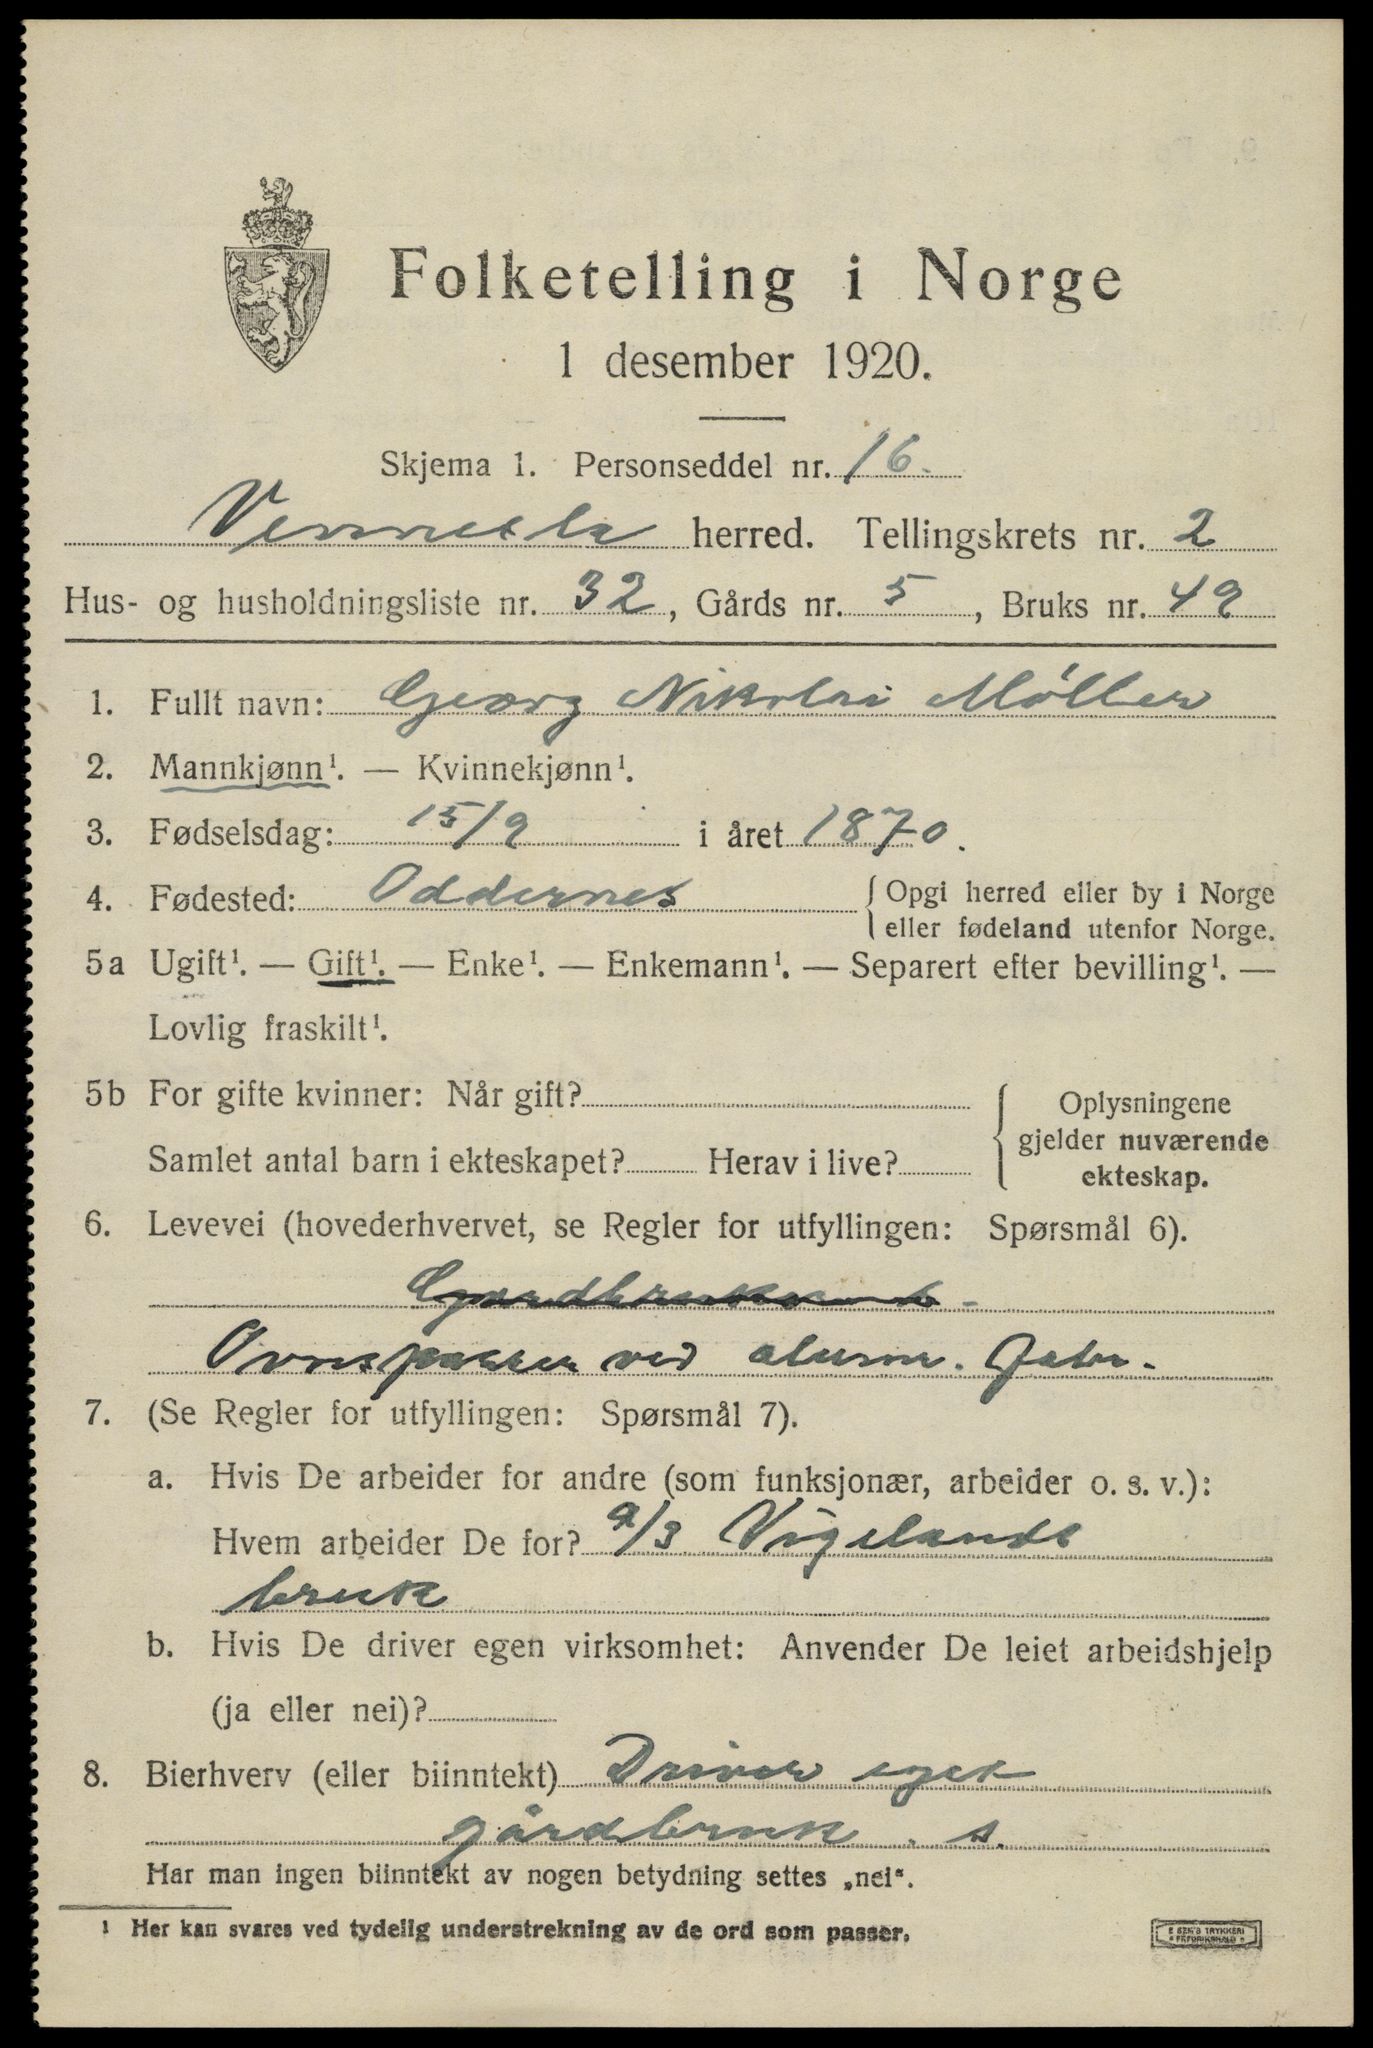 Folketelling i Norge
1 desember 1920.
Skjema 1. Personseddel nr. 16.
Vennesla herred. Tellingskrets nr. 2
Hus- og husholdningsliste nr. 32, Gårds nr. 5, Bruks nr. 49
1. Fullt navn: Georg Nikolai Møller
2. Mannkjønn¹. — Kvinnekjønn¹.
3. Fødselsdag: 15/9 i året 1870.
4. Fødested: Oddernes { Opgi herred eller by i Norge
eller fødeland utenfor Norge.
5a Ugift¹. — Gift¹. — Enke¹. — Enkemann¹. — Separert efter bevilling¹. —
Lovlig fraskilt¹.
5b For gifte kvinner: Når gift?
Samlet antal barn i ekteskapet? Herav i live?
Oplysningene
gjelder nuværende
ekteskap.
6. Levevei (hovederhvervet, se Regler for utfyllingen: Spørsmål 6).
Ovnspasser ved alumn. Fabr.
7. (Se Regler for utfyllingen: Spørsmål 7).
a. Hvis De arbeider for andre (som funksjonær, arbeider o. s. v.):
Hvem arbeider De for? a/s Vigelands
bruk
b. Hvis De driver egen virksomhet: Anvender De leiet arbeidshjelp
(ja eller nei)?
8. Bierhverv (eller biinntekt) Driver eget
gårdbruk. s.
Har man ingen biinntekt av nogen betydning settes „nei“.
¹ Her kan svares ved tydelig understrekning av de ord som passer.